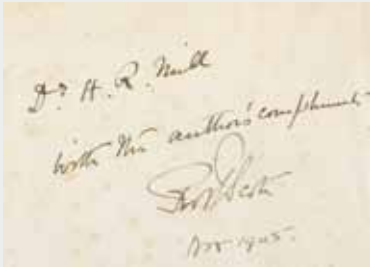 Dr. H. R. Mill
with the author's compliments
R Scott
Nov 1905.